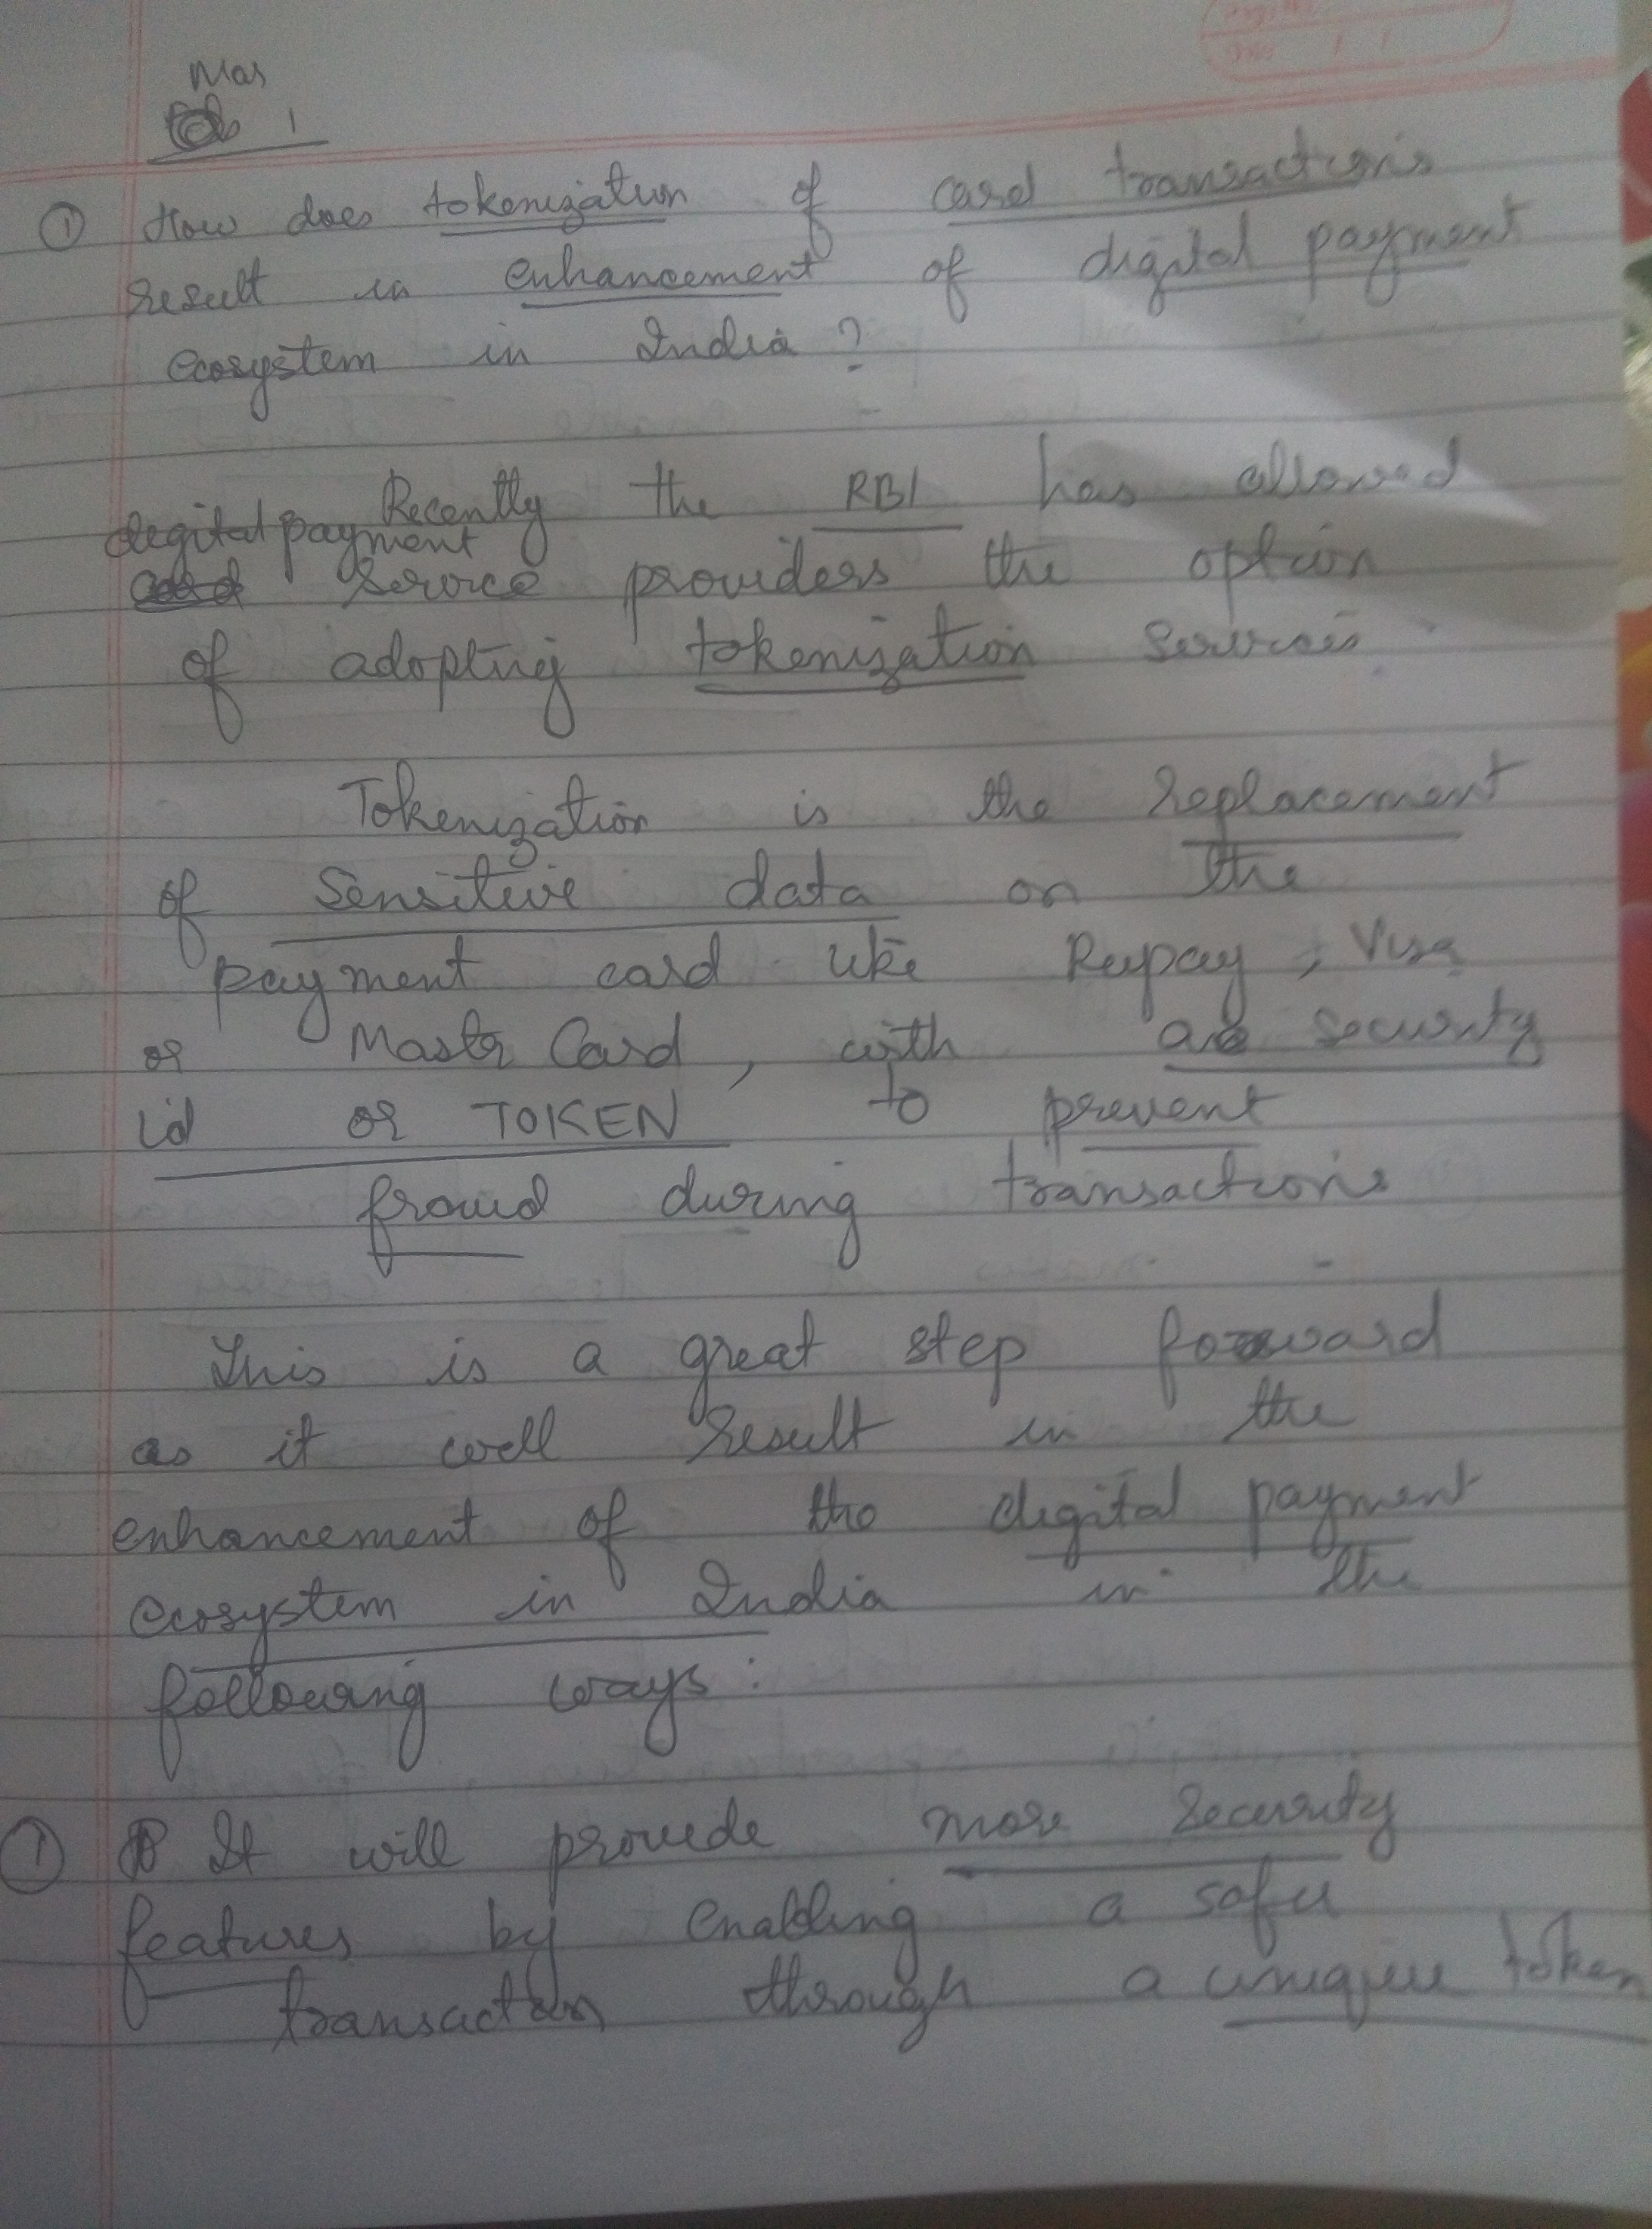 Mar
1
① How does tokenization of card transactions
result in enhancement of digital payment
ecosystem in India ?
Recently the RBI has allowed
digital payment
service providers the option
of adopting tokenization services.
Tokenization is the replacement
of sensitive data on the
payment card like Rupay, Visa
or Master Card, with a security
id or TOKEN to prevent
fraud during transactions
This is a great step forward
as it will result in the
enhancement of the digital payment
ecosystem in India in the
following ways:
① It will provide more security
features by enabling a safer
transaction through a unique token